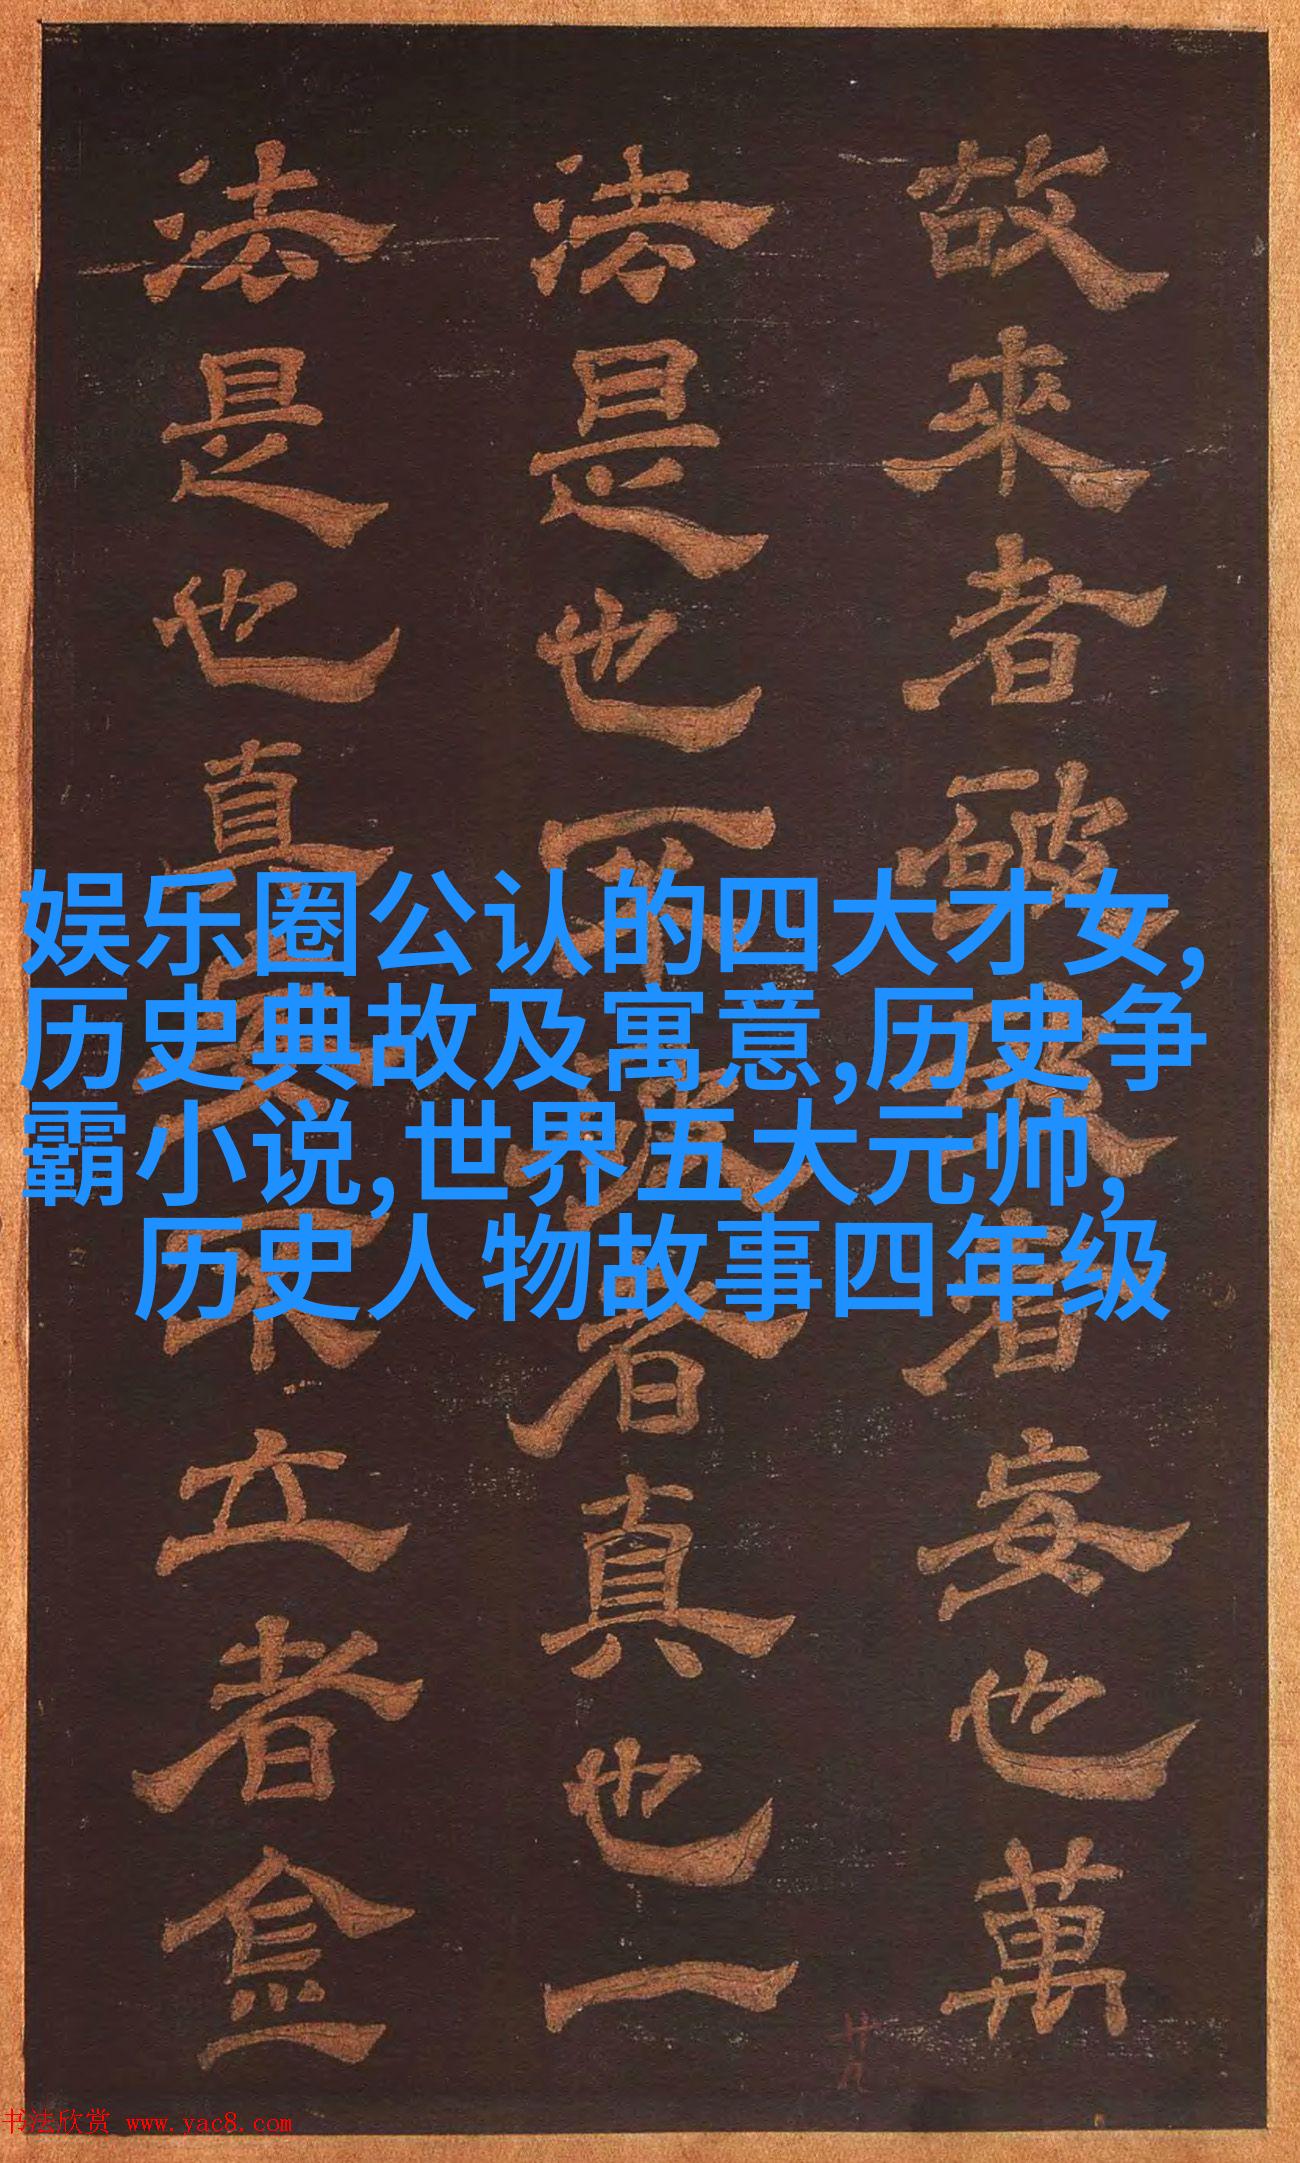 故來者者妄也萬
法是也不者真也一
法是也真不立者
娱乐圈公认的四大才女,
历史典故及寓意,历史争
霸小说,世界五大元帅,
历史人物故事四年级
书法欣赏 www.yac8.com